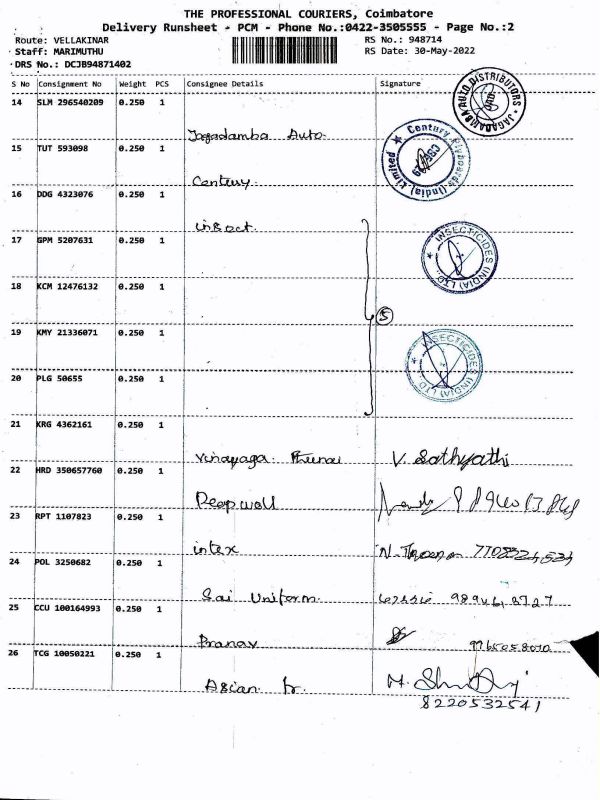 THE PROFESSIONAL COURIERS, Coimbatore
Delivery Runsheet - PCM - Phone No.:0422-3505555 - Page No.:2
Route: VELLAKINAR
RS No.: 948714
Staff: MARIMUTHU
RS Date: 30-May-2022
DRS No.: DCJB94871402
S No Consignment No Weight PCS Consignee Details Signature
14 SLM 296540209 0.250 1
Jagadamba Auto
JAGADAMBA AUTO DISTRIBUTORS
15 TUT 593098 0.250 1
Century
Century Plyboards (India) Limited
CBE
16 DDG 4323076 0.250 1
insect
17 GPM 5207631 0.250 1
INSECTICIDES (INDIA) LTD.
18 KCM 12476132 0.250 1
5
19 KMY 21336071 0.250 1
INSECTICIDES (INDIA) LTD
20 PLG 50655 0.250 1
21 KRG 4362161 0.250 1
Vinayaga V. Sathyathi
22 HRD 350657760 0.250 1
Deepwell
23 RPT 1107823 0.250 1
intex
24 POL 3250682 0.250 1
Sai Uniform
25 CCU 100164993 0.250 1
Pranav
26 TCG 10050221 0.250 1
Asian
8220532541